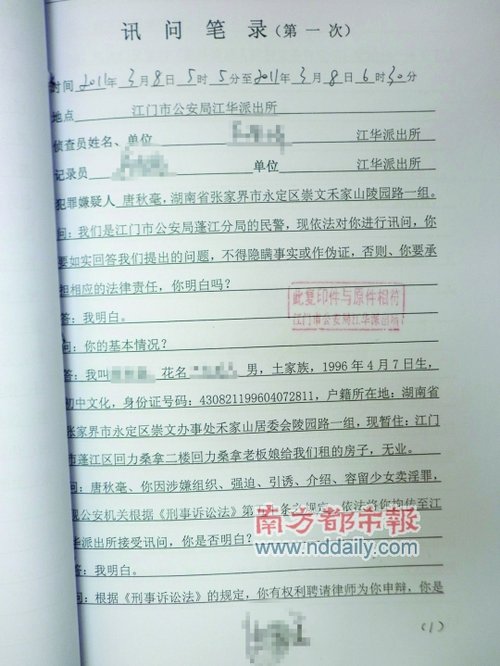 讯问笔录(第一次)
时间 2011年3月8日5时5分至2011年3月8日6时30分
地点 江门市公安局江华派出所
侦查员姓名、单位 江华派出所
记录员 单位 江华派出所
犯罪嫌疑人 唐秋毫,湖南省张家界市永定区崇文禾家山陵园路一组。
问:我们是江门市公安局蓬江分局的民警,现依法对你进行讯问,你
要如实回答我们提出的问题,不得隐瞒事实或作伪证,否则、你要承
担相应的法律责任,你明白吗?
答:我明白。
此复印件与原件相符
江门市公安局江华派出所
问:你的基本情况?
答:我叫 花名 男,土家族,1996年4月7日生,
初中文化,身份证号码:430821199604072811,户籍所在地:湖南省
张家界市永定区崇文办事处禾家山居委会陵园路一组,现暂住:江门
市蓬江区回力桑拿二楼回力桑拿老板娘给我们租的房子,无业。
问:唐秋毫、你因涉嫌组织、强迫、引诱、介绍、容留少女卖淫罪,
现公安机关根据《刑事诉讼法》第 条之规定,依法将你拘传至江
华派出所接受讯问,你是否明白?
南方都市報
www.nddaily.com
答:我明白。
问:根据《刑事诉讼法》的规定,你有权利聘请律师为你申辩,你是
(1)